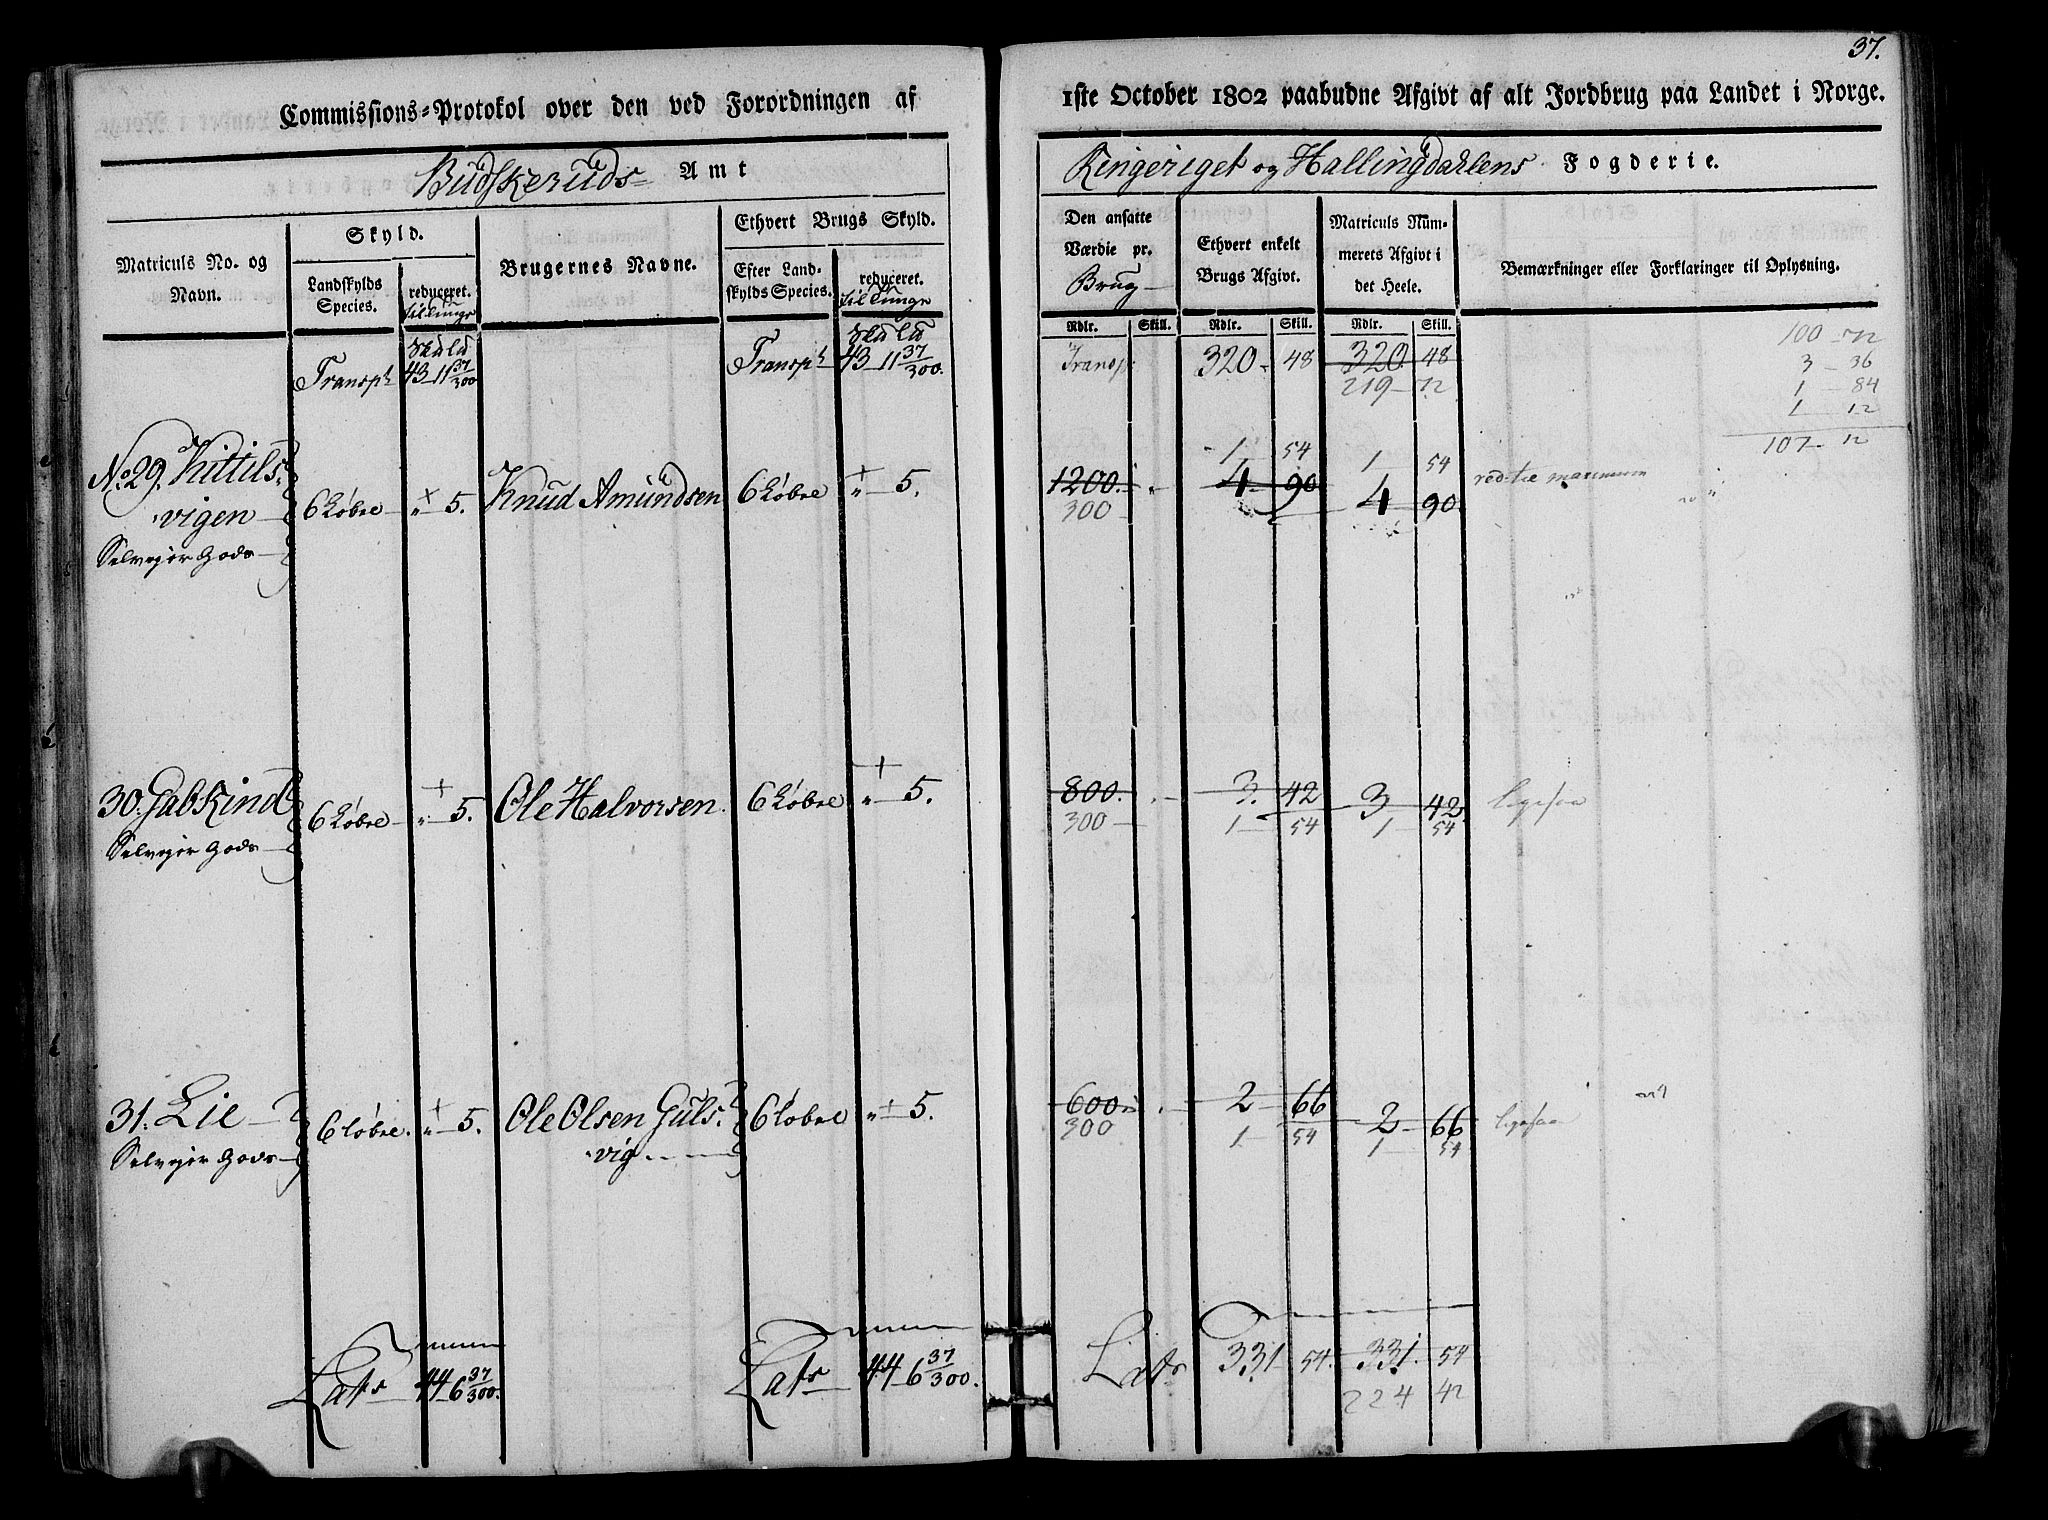 37.
Commissions-Protokol over den ved Forordningen af
1ste October 1802 paabudne Afgivt af alt Jordbrug paa Landet i Norge.
Budskeruds Amt
Ringeriget og Hallingdahlens Fogderie.
Matriculs No. og Navn.
Skyld.
Landskylds Species.
reduceret.
til tunge
Brugernes Navne.
Ethvert Brugs Skyld.
Efter Landskylds Species.
reduceret.
til tunge
Den ansatte Værdie pr. Brug
Ethvert enkelt Brugs Afgivt.
Matriculs Nummerets Afgivt i det Heele.
Bemærkninger eller Forklaringer til Oplysning.
Rdlr. Skill. Rdlr. Skill. Rdlr. Skill.
Skd Ld Skd Ld
Transpt 43 - 11 37/300 Transpt 43 - 11 37/300. Transp 320 - 48 320 48
219 - 72
100 - 72
3 - 36
1 - 84
1 - 12
107 - 12
1 54 1 54
No. 29. Kittils- 6 Løbe - „ + 5. Knud Amundsen 6 Løbe „ - 5. 1200. „ 4 - 90 4 90
vigen 300
Selvejer Gods
30. Gabkind 6 Løbe - „ + 5. Ole Halvorsen. 6 Løbe „ - 5. 800. „ 3. 42 3 42 ligesaa
Selvejer Gods 300 1 54 1 54
31. Lie 6 Løbe. „ + 5. Ole Olsen Guls- 6 Løbe „ + 5. 600 „ 2 66 2 66 ligesaa
Selvejer Gods vig 300 1 54 1 54
Lats 44 - 6 37/300. Lats 44 - 6 37/300. Lats 331 - 54. 331. 54
224 42